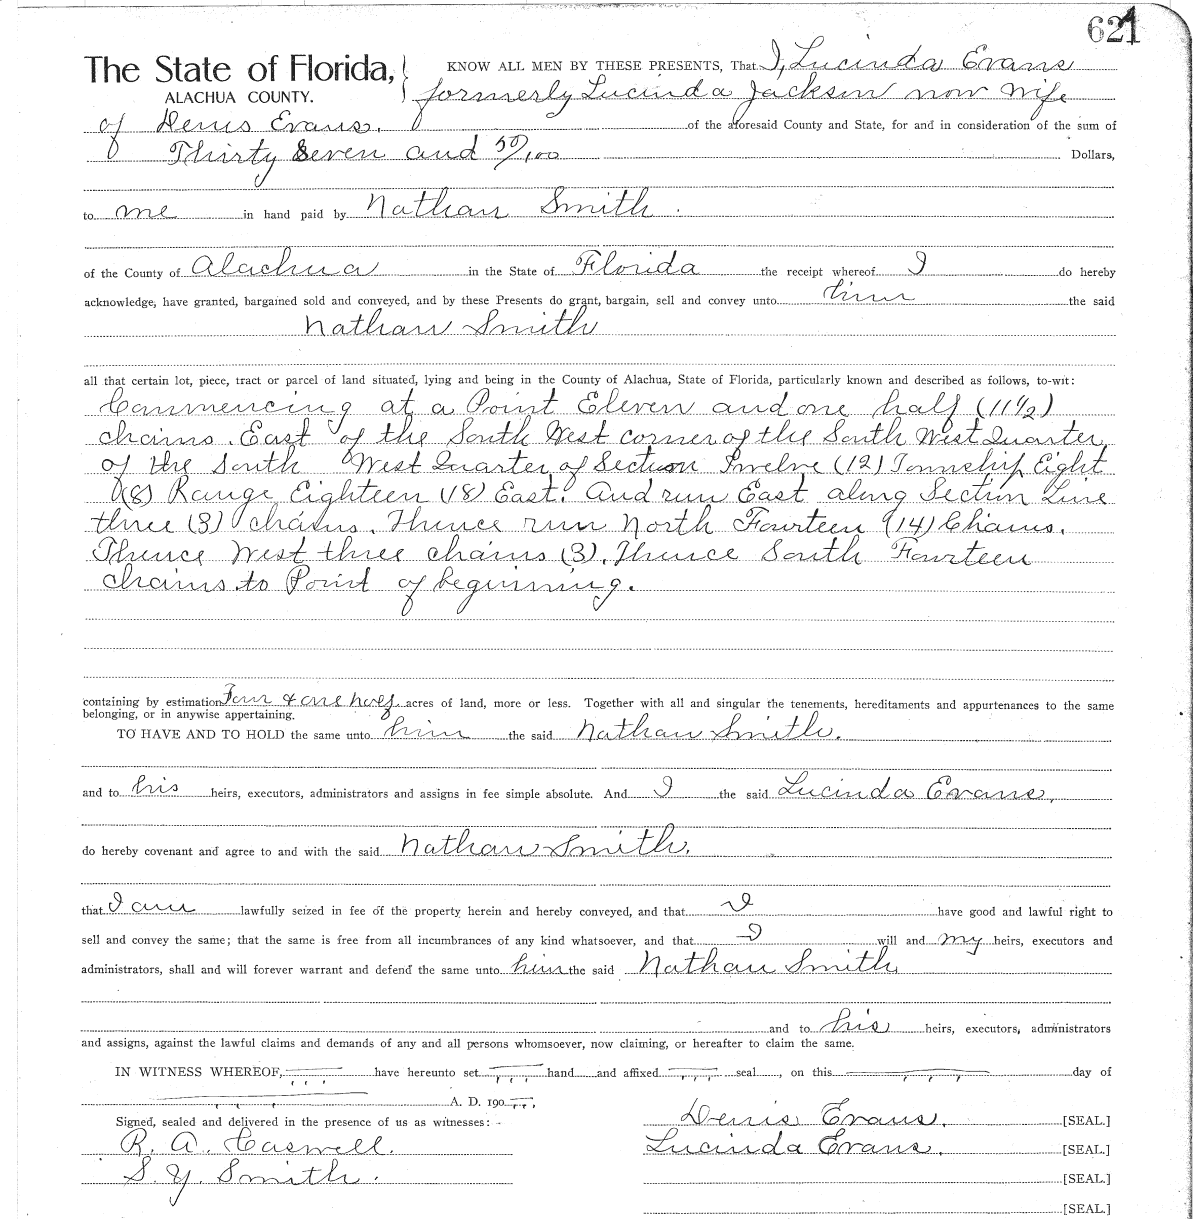 621
The State of Florida, KNOW ALL MEN BY THESE PRESENTS, That I, Lucinda Evans
ALACHUA COUNTY. formerly Lucinda Jackson now wife
of Denis Evans. of the aforesaid County and State, for and in consideration of the sum of
Thirty Seven and 50/100 Dollars,
to me in hand paid by Nathan Smith.
of the County of Alachua in the State of Florida the receipt whereof I do hereby
acknowledge, have granted, bargained sold and conveyed, and by these Presents do grant, bargain, sell and convey unto him the said
Nathan Smith
all that certain lot, piece, tract or parcel of land situated, lying and being in the County of Alachua, State of Florida, particularly known and described as follows, to-wit:
Commencing at a Point Eleven and one half (11 1/2)
chains. East of the South West corner of the South West Quarter
of the South West Quarter of Section Twelve (12) Township Eight
(8) Range Eighteen (18) East. And run East along Section Line
three (3) chains. Thence run North Fourteen (14) Chains.
Thence West three chains (3). Thence South Fourteen
chains to Point of beginning.
containing by estimation Four & one half acres of land, more or less. Together with all and singular the tenements, hereditaments and appurtenances to the same
belonging, or in anywise appertaining.
TO HAVE AND TO HOLD the same unto him the said Nathan Smith.
and to his heirs, executors, administrators and assigns in fee simple absolute. And I the said Lucinda Evans,
do hereby covenant and agree to and with the said Nathan Smith.
that I am lawfully seized in fee of the property herein and hereby conveyed, and that I have good and lawful right to
sell and convey the same; that the same is free from all incumbrances of any kind whatsoever, and that I will and my heirs, executors and
administrators, shall and will forever warrant and defend the same unto him the said Nathan Smith
and to his heirs, executors, administrators
and assigns, against the lawful claims and demands of any and all persons whomsoever, now claiming, or hereafter to claim the same.
IN WITNESS WHEREOF, have hereunto set hand and affixed seal, on this day of
A. D. 190
Signed, sealed and delivered in the presence of us as witnesses: Denis Evans. [SEAL.]
R. A. Caswell. Lucinda Evans. [SEAL.]
S. Y. Smith. [SEAL.]
[SEAL.]